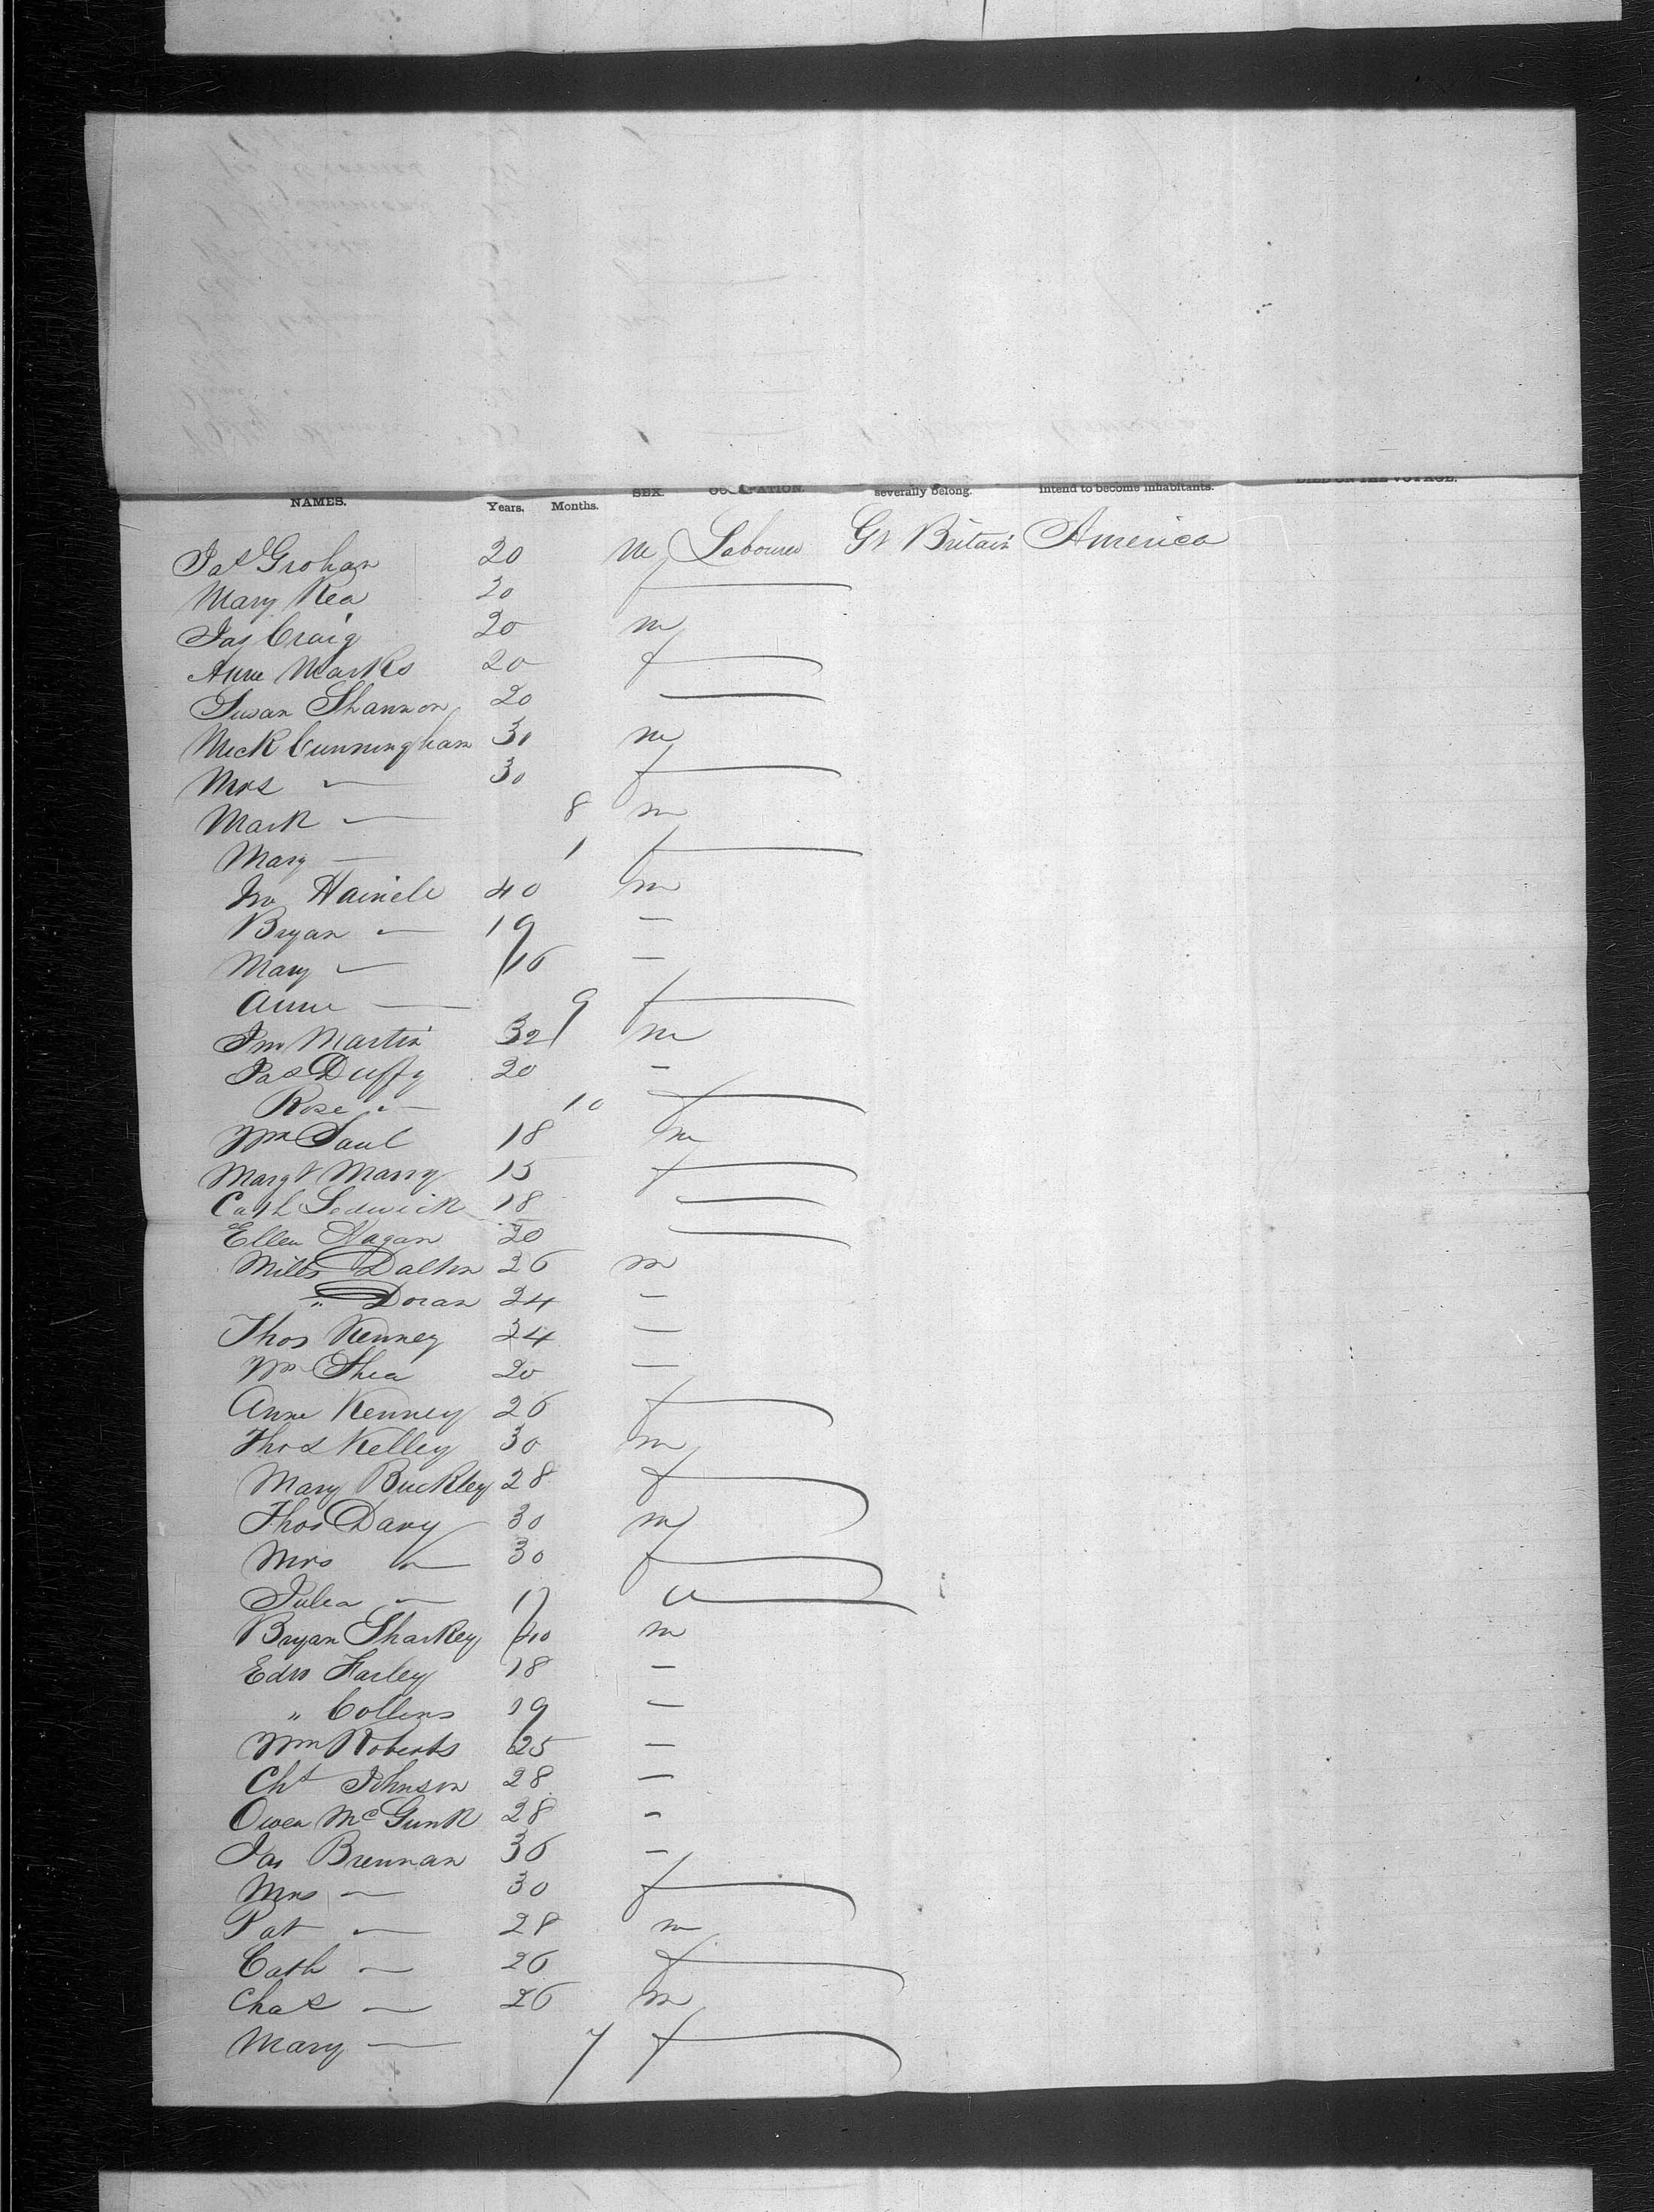 NAMES. Years. Months. SEX. OCCUPATION. severally belong. intend to become inhabitants. DIED ON THE VOYAGE.
Jas Grohan 20 m Labourer Gt Britain America
Mary Rea 20 f —
Jas Craig 20 m
Anne Marks 20 f —
Susan Shannon 20 —
Mick Cunningham 30 m
Mrs — 30 f —
Mark — 8 m
Mary — 1 f —
Jno 40 m
Bryan — 19 —
Mary — 16 —
Anne — 9 f —
Jno Martin 32 m
Jas Duffy 20 —
Rose — 10 f —
Wm Saul 18 m
Margt Marry 15 f —
Cath Sedwick 18 —
Ellen Hagan 20 —
Dalton 26 m
" Doran 24 —
Thos Kenney 24 —
Wm Shea 20 —
Anne Kenney 26 f —
Thos Kelley 30 m
Mary Buckley 28 f —
Thos Davy 30 m
Mrs — 30 f —
Julia — 17 —
Bryan Sharkey 40 m
Edw Farley 18 —
" Collins 19 —
Wm Roberts 25 —
Johnson 28 —
Owen McGunk 28 —
Jas Brennan 36 —
Mrs — 30 f —
Pat — 28 m
Cath — 26 f —
Chas — 26 m
Mary — 7 f —